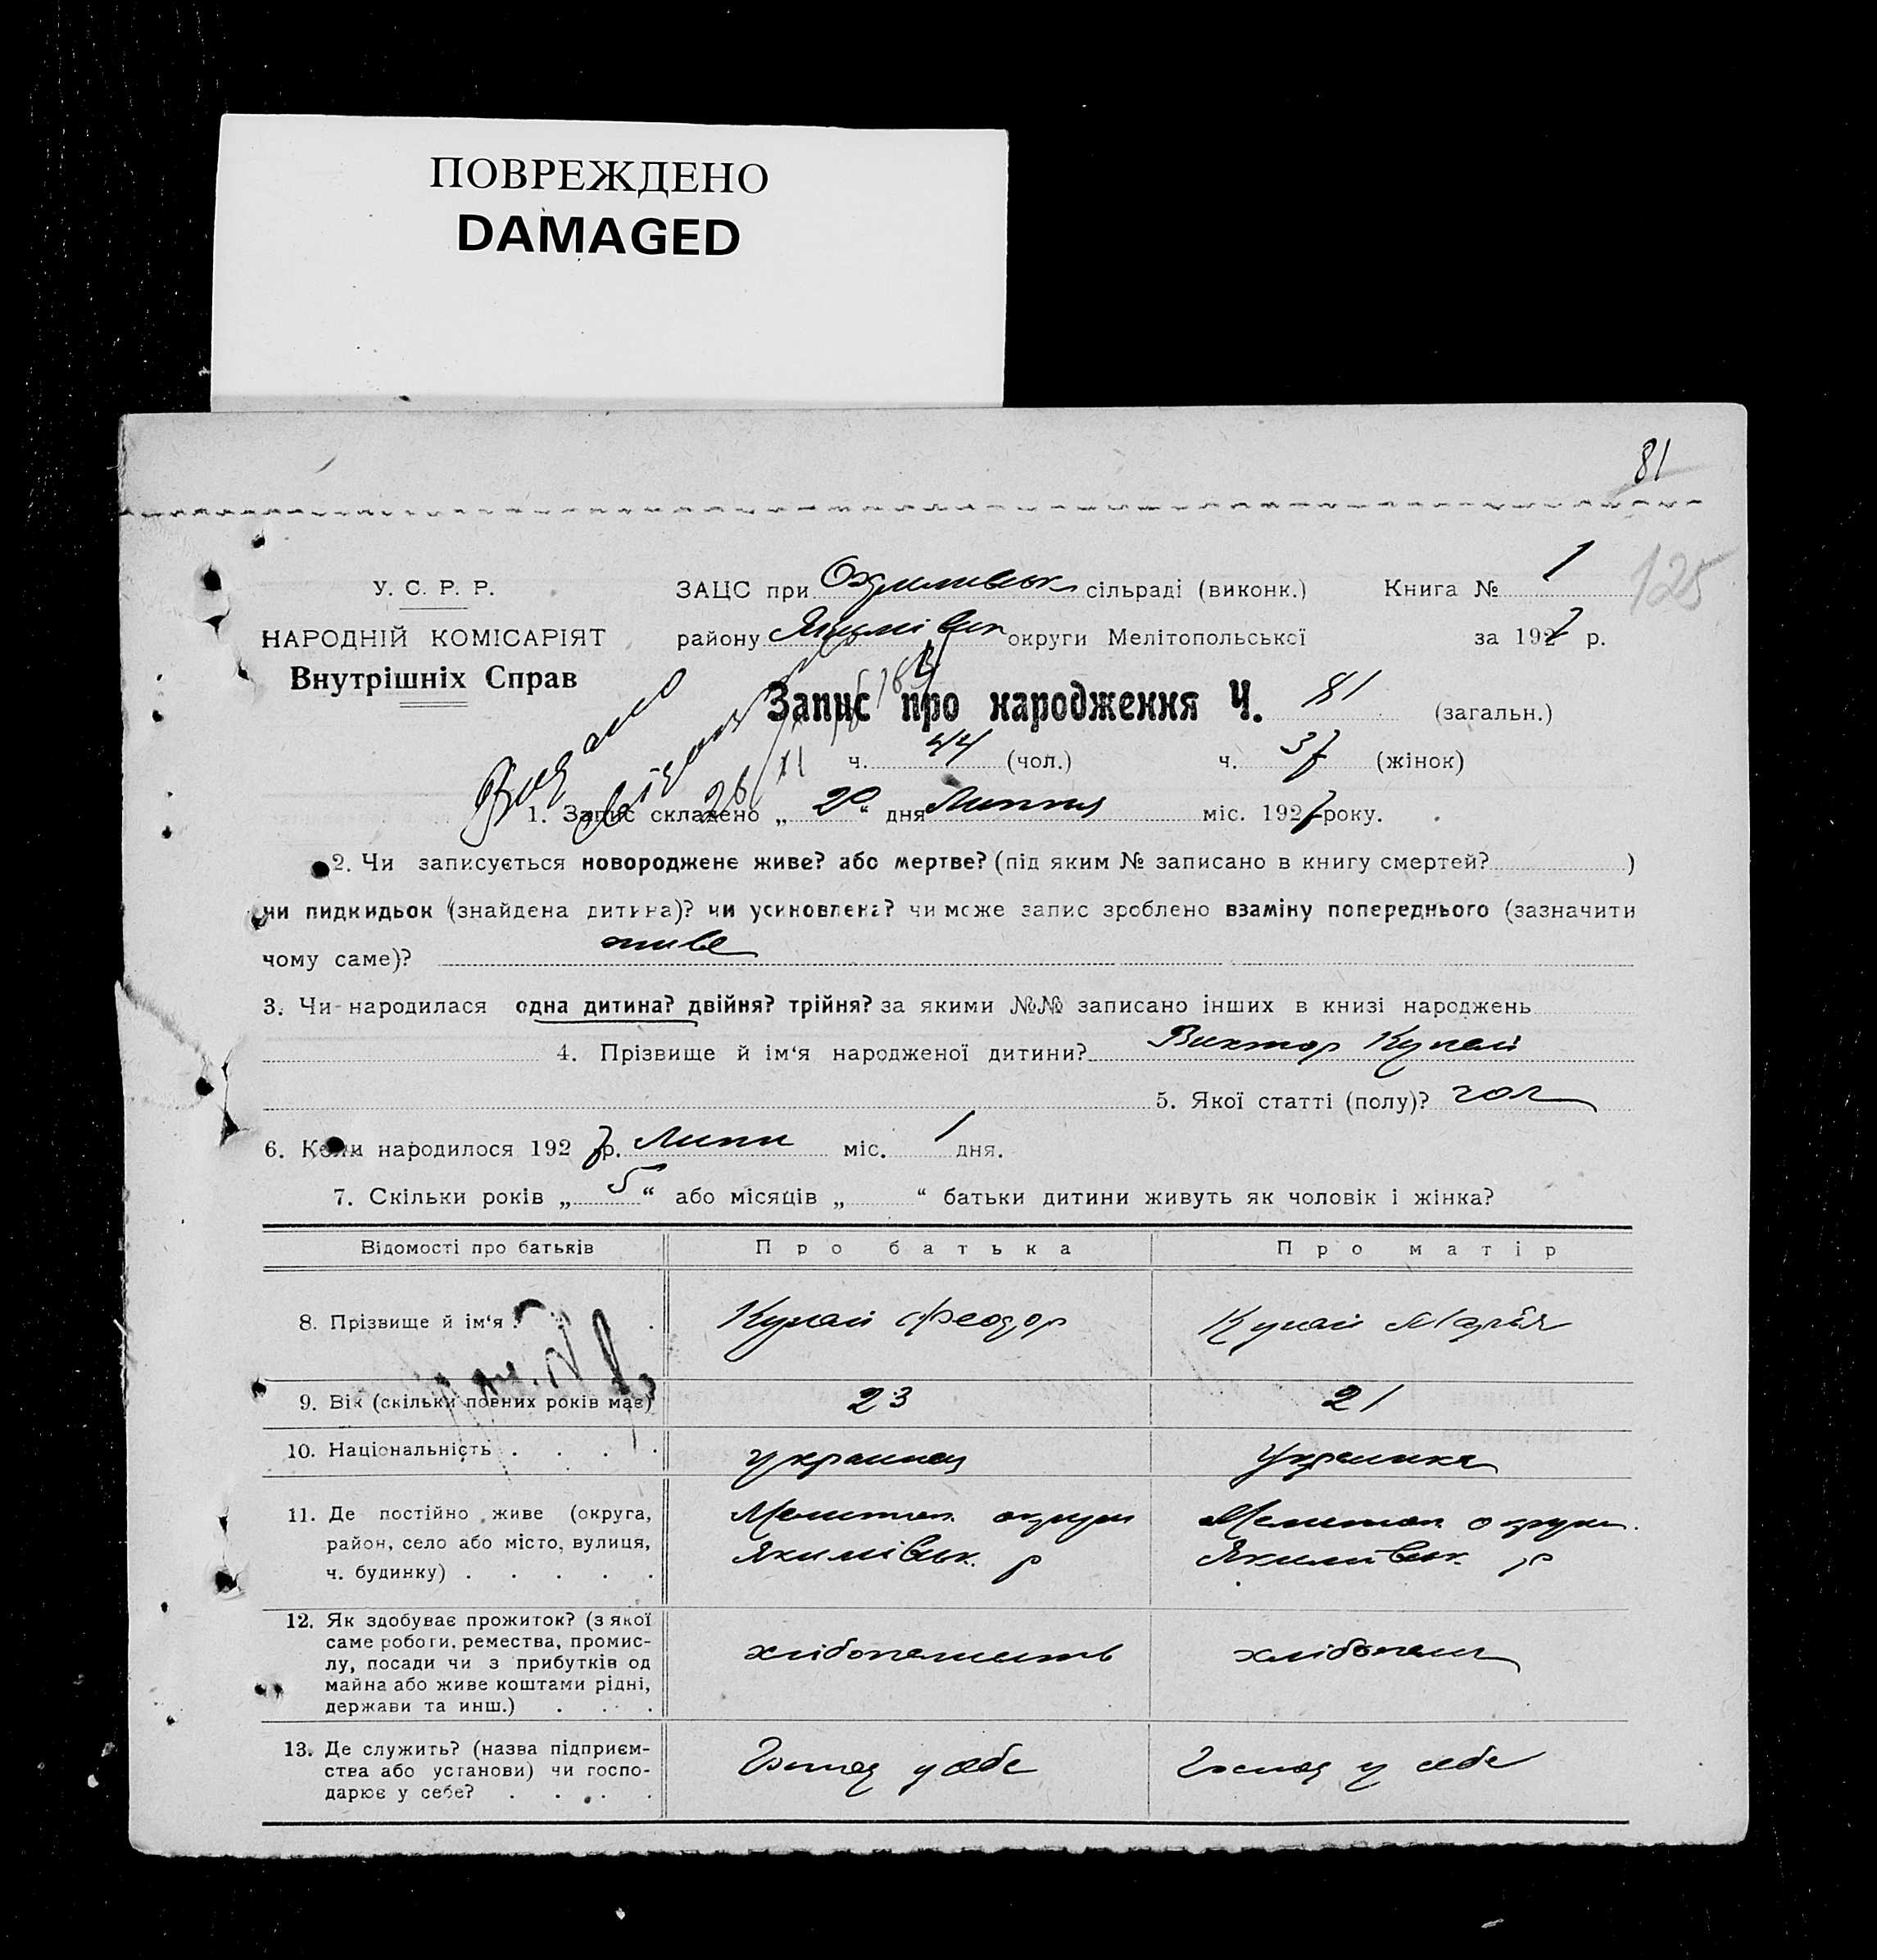 ПОВРЕЖДЕНО
DAMAGED
81
У. С. Р. Р.
НАРОДНІЙ КОМІСАРІЯТ
Внутрішніх Справ
ЗАЦС при сільраді (виконк.)
району Якимівськ округи Мелітопольської
Книга № 1
125
за 1927 р.
Запис про народження Ч. 81 (загальн.)
ч. 44 (чол.) ч. 37 (жінок)
Видано
26/XI
1. Запис складено „ 20 “ дня Липня міс. 1927 року.
2. Чи записується новороджене живе? або мертве? (під яким № записано в книгу смертей? )
чи пидкидьок (знайдена дитина)? чи усиновлена? чи може запис зроблено взаміну попереднього (зазначити
чому саме)? живе
3. Чи народилася одна дитина? двійня? трійня? за якими №№ записано інших в книзі народжень
4. Прізвище й ім‘я народженої дитини? Виктор
5. Якої статті (полу)? чол
6. Коли народилося 1927 р. Липн міс. 1 дня.
7. Скільки років „ 5 “ або місяців „ “ батьки дитини живуть як чоловік і жінка?
Відомості про батьків Про батька Про матір
8. Прізвище й ім‘я . . Феодор Марія
9. Вік (скільки повних років має) 23 21
10. Національність . . . . украинец Украинка
11. Де постійно живе (округа,
район, село або місто, вулиця,
ч. будинку) . . . . .
Мелитоп. округи
Якимівськ. р
Мелитоп округи.
Якимівськ. р
12. Як здобуває прожиток? (з якої
саме роботи, ремества, промис-
лу, посади чи з прибутків од
майна або живе коштами рідні,
держави та инш.) . . .
хліборопашить
хлібопаш
13. Де служить? (назва підприєм-
ства або установи) чи госпо-
дарює у себе? . . . .
Господ у себе
Господ у себе